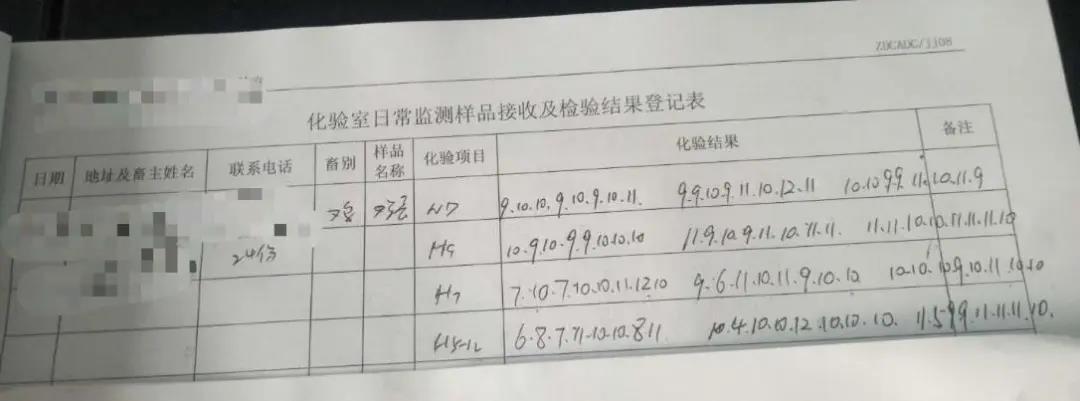 ZDCADC/JJ08
化验室日常监测样品接收及检验结果登记表
日期 地址及畜主姓名 联系电话 畜别 样品名称 化验项目 化验结果 备注
鸡 ND 9.10.10.9.10.9.10.11. 9.9.10.9.11.10.12.11 10.10.9.9.11.10.11.9
24份 H9 10.9.10.9.9.10.10.10 11.9.10.9.11.10.11.11. 11.11.10.10.11.11.11.10
H7 7.10.7.10.10.11.12.10 9.6.11.10.11.9.10.10 10.10.10.9.10.11.10.10
H5-12 6.8.7.11.10.10.8.11 10.4.10.10.12.10.10.10. 11.5.9.9.11.11.11.10.